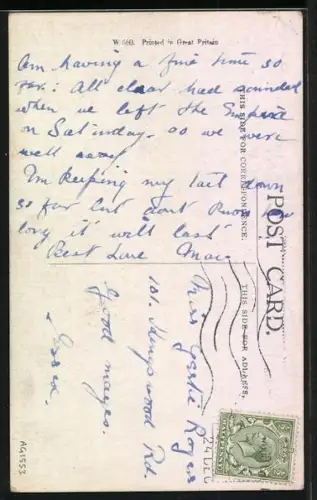 W. 560. Printed in Great Britain
Am having a fine time so
far. All clear had sounded
when we left the Empire
on Saturday. so we were
well away
I'm keeping my tail down
so far but dont know how
long it will last
Best Love Mac.
THIS SIDE FOR CORRESPONDENCE.
POST CARD.
THIS SIDE FOR ADDRESS.
Miss Gertie Roger
101. Hempswood Rd.
Good mayes.
Essex.
24 DEC
AG1552